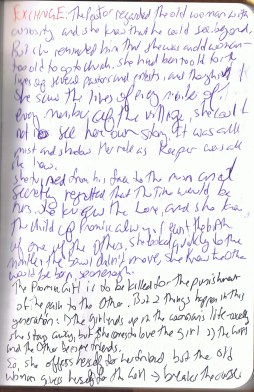 EXCHANGE: The Pastor regarded the old woman with
curiosity and she knew that he could see beyond.
But she reminded him that she was an old woman -
too old to go to church, she had been told for the
lives of several pastors and priests, and though
she saw the lives of every
every member of the village, she could
not see her own story. It was all
past and shadow. Her role as Keeper was all
she knew.
She turned from his face to the man and
secretly regretted that the time would be
hers. She knew the Lore, and she knew
the child of Promise
of one of the Others. She looked quickly to the
didn't move, she knew the one
would be born soon enough.
The Promise Girl is to be killed for the punishment
of the path to the Other. But 2 things happen in this
generation: 1) the girl ends up in the woman's life - really
she stays away, but she comes to love the girl 2) the Girl
and the Other become friends.
So, she offers herself to be
woman gives herself for the Girl → breaks the cycle